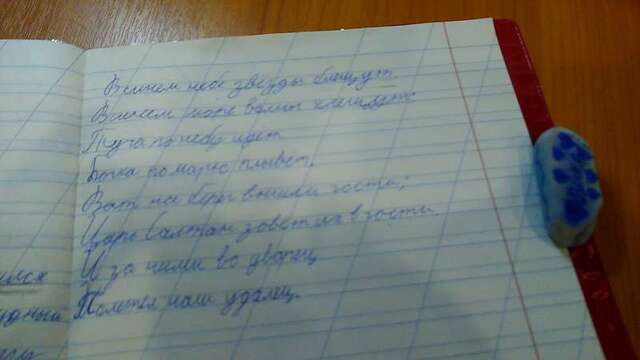 В синем небе звезды блещут
В синем море волны хлещут
Туча по небу идет
Бочка по морю плывёт.
Вот на берег вышли гости;
Царь Салтан зовет их в гости
И за ними во дворец
Полетел наш удалец.